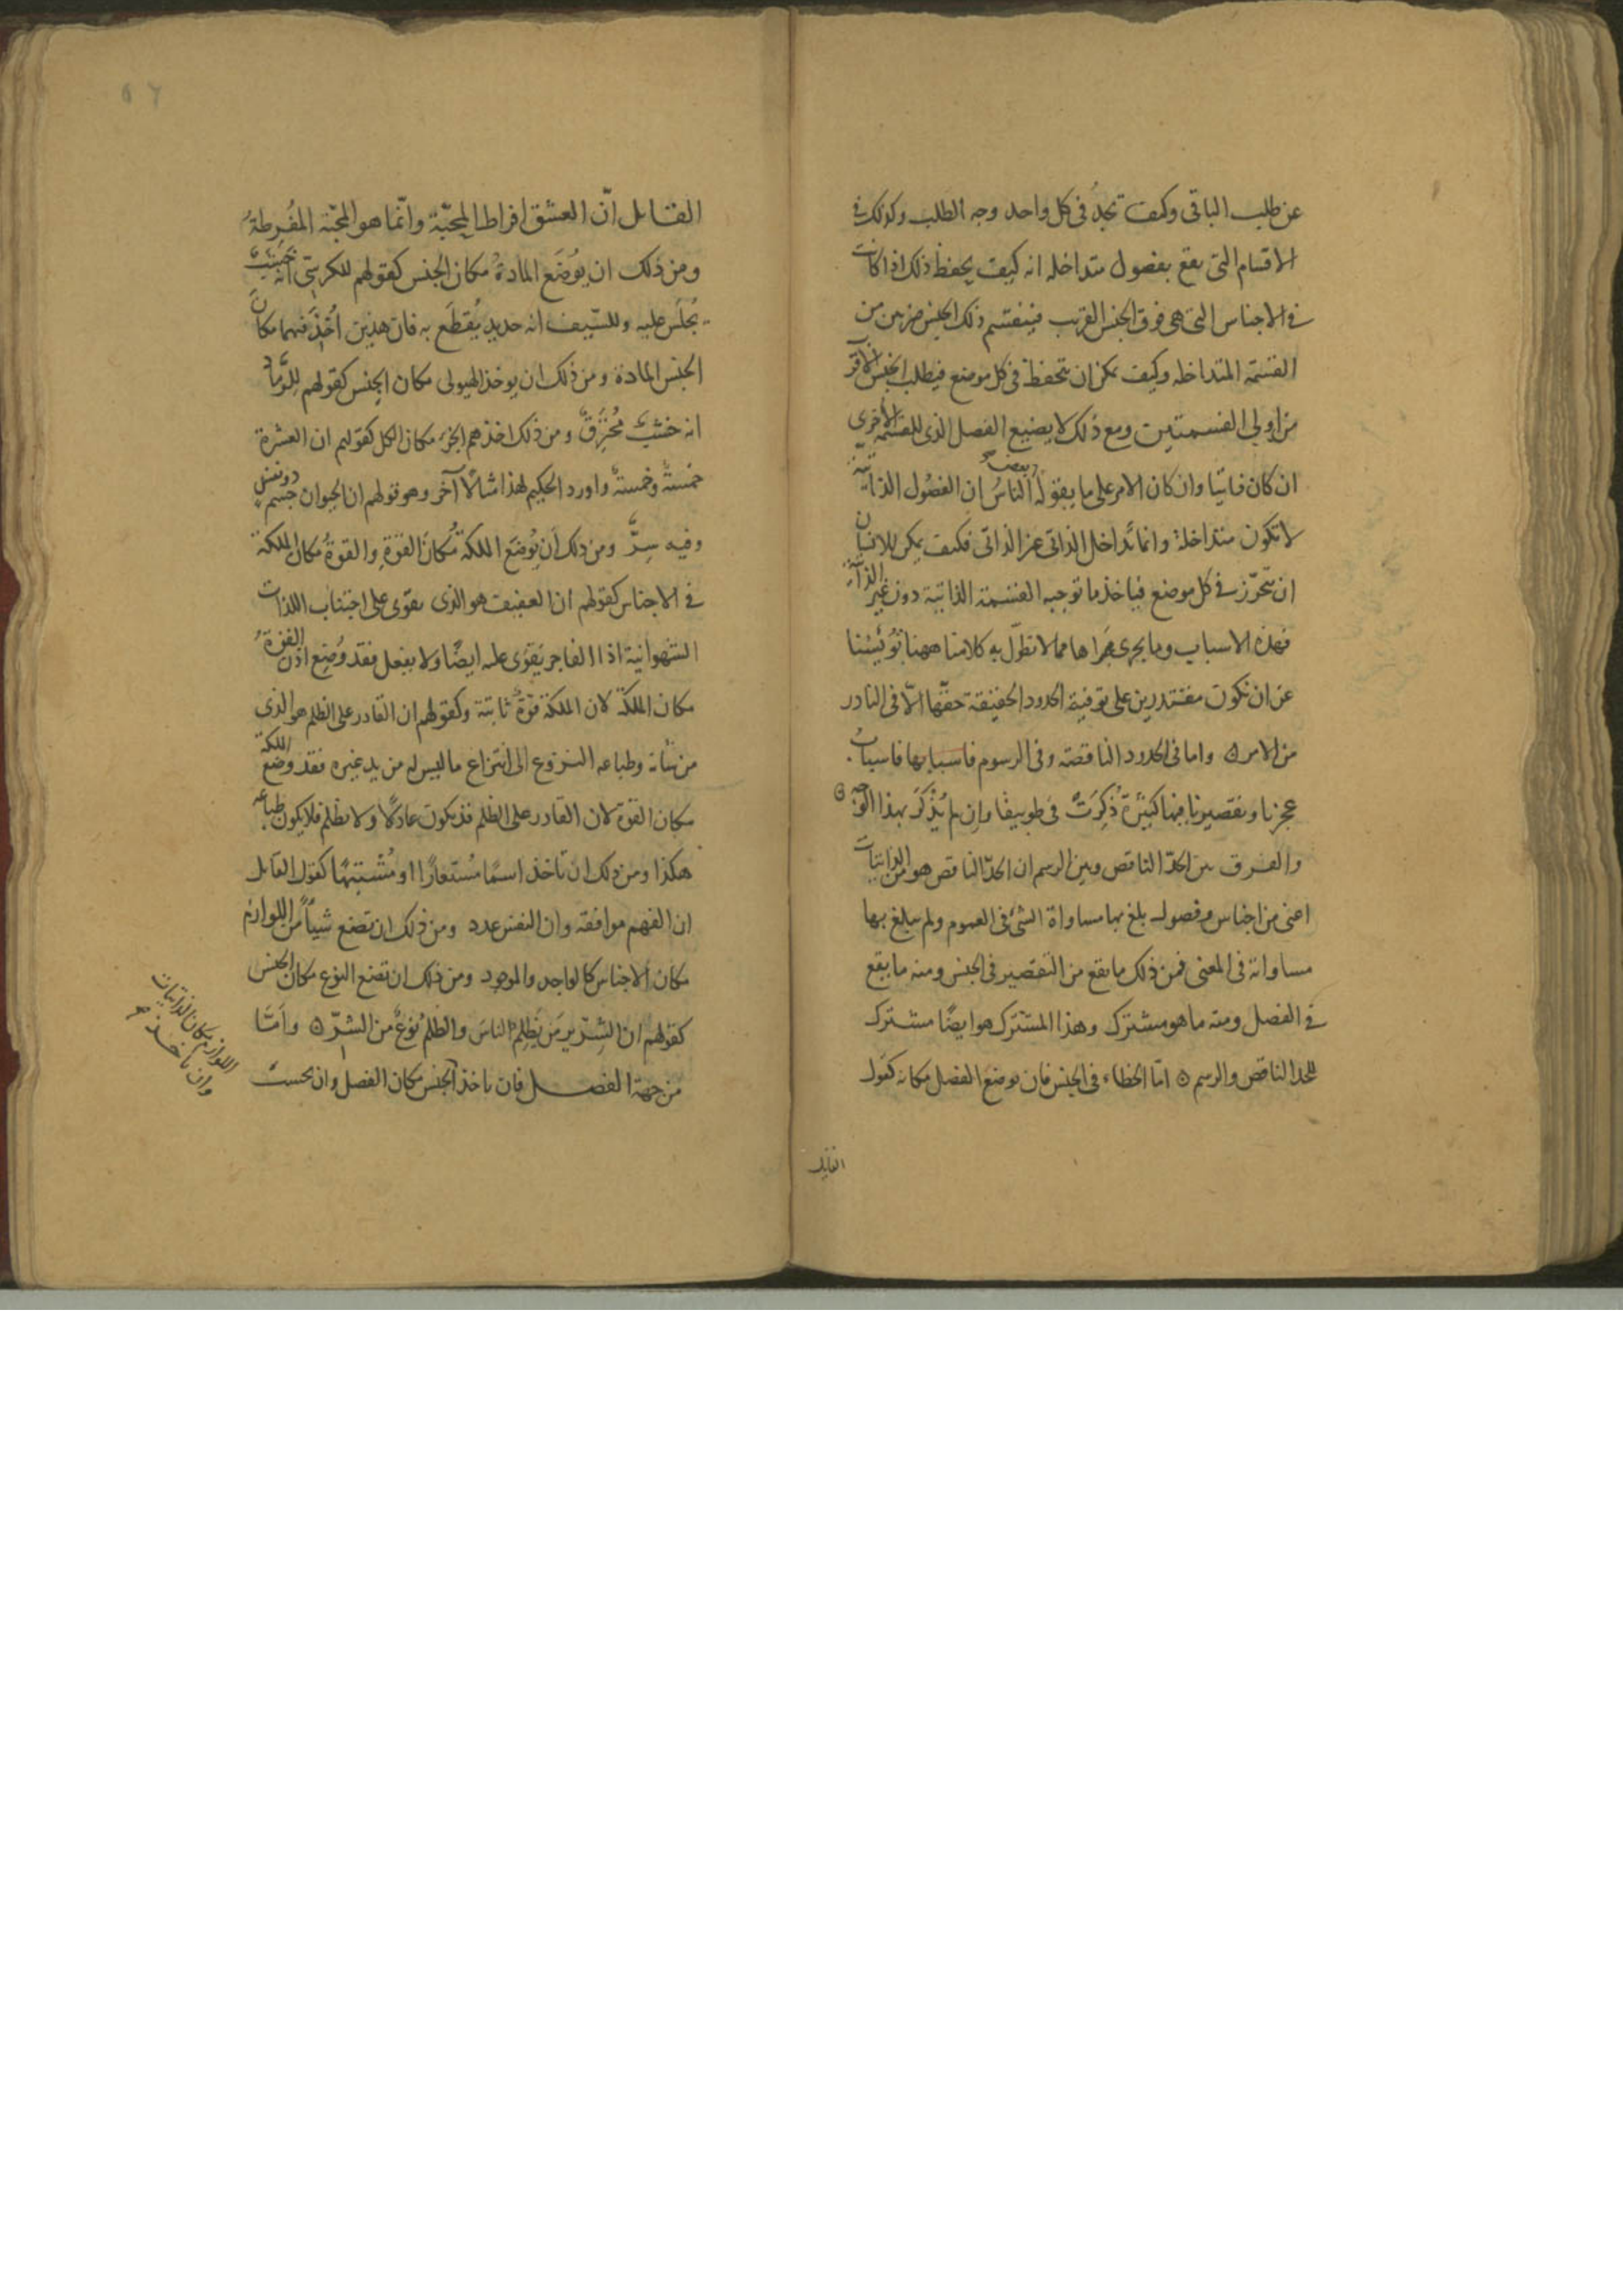 عن طلب الباقى وكيف تجد فى كل واحد وجه الطلب وكذلك فى
الاقسام التى تقع بفصول متداخله انه كيف يحفظ ذلك اذا كانت
فى الاجناس التى هى فوق الجنس القريب فينقسم ذلك الجنس ضربين من
القسمة المتداخله وكيف يمكن ان يتحفظ فى كل موضع فيطلب الجنس الاقرب
من اولى القسمتين ومع ذلك لا يضيع الفصل الذى للقسمة الاخرى
ان كان ذاتيا وان كان الامر على ما يقوله بعض الناس ان الفصول الذاتية
لا تكون متداخلة وانما تداخل الذاتى غير الذاتى فكيف يمكن للانسان
ان يتحرز فى كل موضع فياخذ ما توجبه القسمة الذاتية دون غير الذاتية
فهذه الاسباب وما يجرى مجراها مما لا نطول به كلامنا ههنا تؤيسنا
عن ان نكون مقتدرين على توفية الحدود الحقيقة حقها الا فى النادر
من الامر ه واما فى الحدود الناقصة وفى الرسوم فاسبابها فاسباب
عجزنا وتقصيرنا فيها كثيرة ذكرت فى طوبيقا وان لم يذكر بهذا الوجه ه
والفرق بين الحد الناقص وبين الرسم ان الحد الناقص هو من الذاتيات
اعنى من اجناس وفصول بلغ بها مساواة الشئ فى العموم ولم يبلغ بها
مساواته فى المعنى فمن ذلك ما يقع من التقصير فى الجنس ومنه ما يقع
فى الفصل ومنه ما هو مشترك وهذا المشترك هو ايضا مشترك
للحد الناقص والرسم ه اما الخطاء فى الجنس فان يوضع الفصل مكانه كقول
القايل
القايل ان العشق افراط المحبة وانما هو المحبة المفرطة
ومن ذلك ان يوضع المادة مكان الجنس كقولهم للكرسى انه خشب
يجلس عليه وللسيف انه حديد يقطع به فان هذين اخذ فيهما مكان
الجنس المادة ومن ذلك ان يوخذ الهيولى مكان الجنس كقولهم للرماد
انه خشب محترق ومن ذلك اخذهم الجزء مكان الكل كقولهم ان العشرة
خمسة وخمسة واورد الحكيم لهذا مثالا آخر وهو قولهم ان الحيوان جسم ذو نفس
وفيه سر ومن ذلك ان توضع الملكة مكان القوة والقوة مكان الملكة
فى الاجناس كقولهم ان العفيف هو الذى يقوى على اجتناب اللذات
الشهوانية اذ الفاجر يقوى عليه ايضا ولا يفعل فقد وضع اذن القوة
مكان الملكة لان الملكة قوة ثابتة وكقولهم ان القادر على الظلم هو الذى
من شانه وطباعه النزوع الى انتزاع ما ليس له من يد غيره فقد وضع الملكة
مكان القوة لان القادر على الظلم قد يكون عادلا ولا يظلم فلا يكون طباعه
هكذا ومن ذلك ان تاخذ اسما مستعارا او مشتبها كقول القايل
ان الفهم موافقة وان النفس عدد ومن ذلك ان تضع شيئا من اللوازم
مكان الاجناس كالواحد والموجود ومن ذلك ان تضع النوع مكان الجنس
كقولهم ان الشرير من يظلم الناس والظلم نوع من الشر ه واما
من جهة الفصل فان ياخذ الجنس مكان الفصل وان يحسب
وان ياخذ
اللوازم مكان الذاتيات